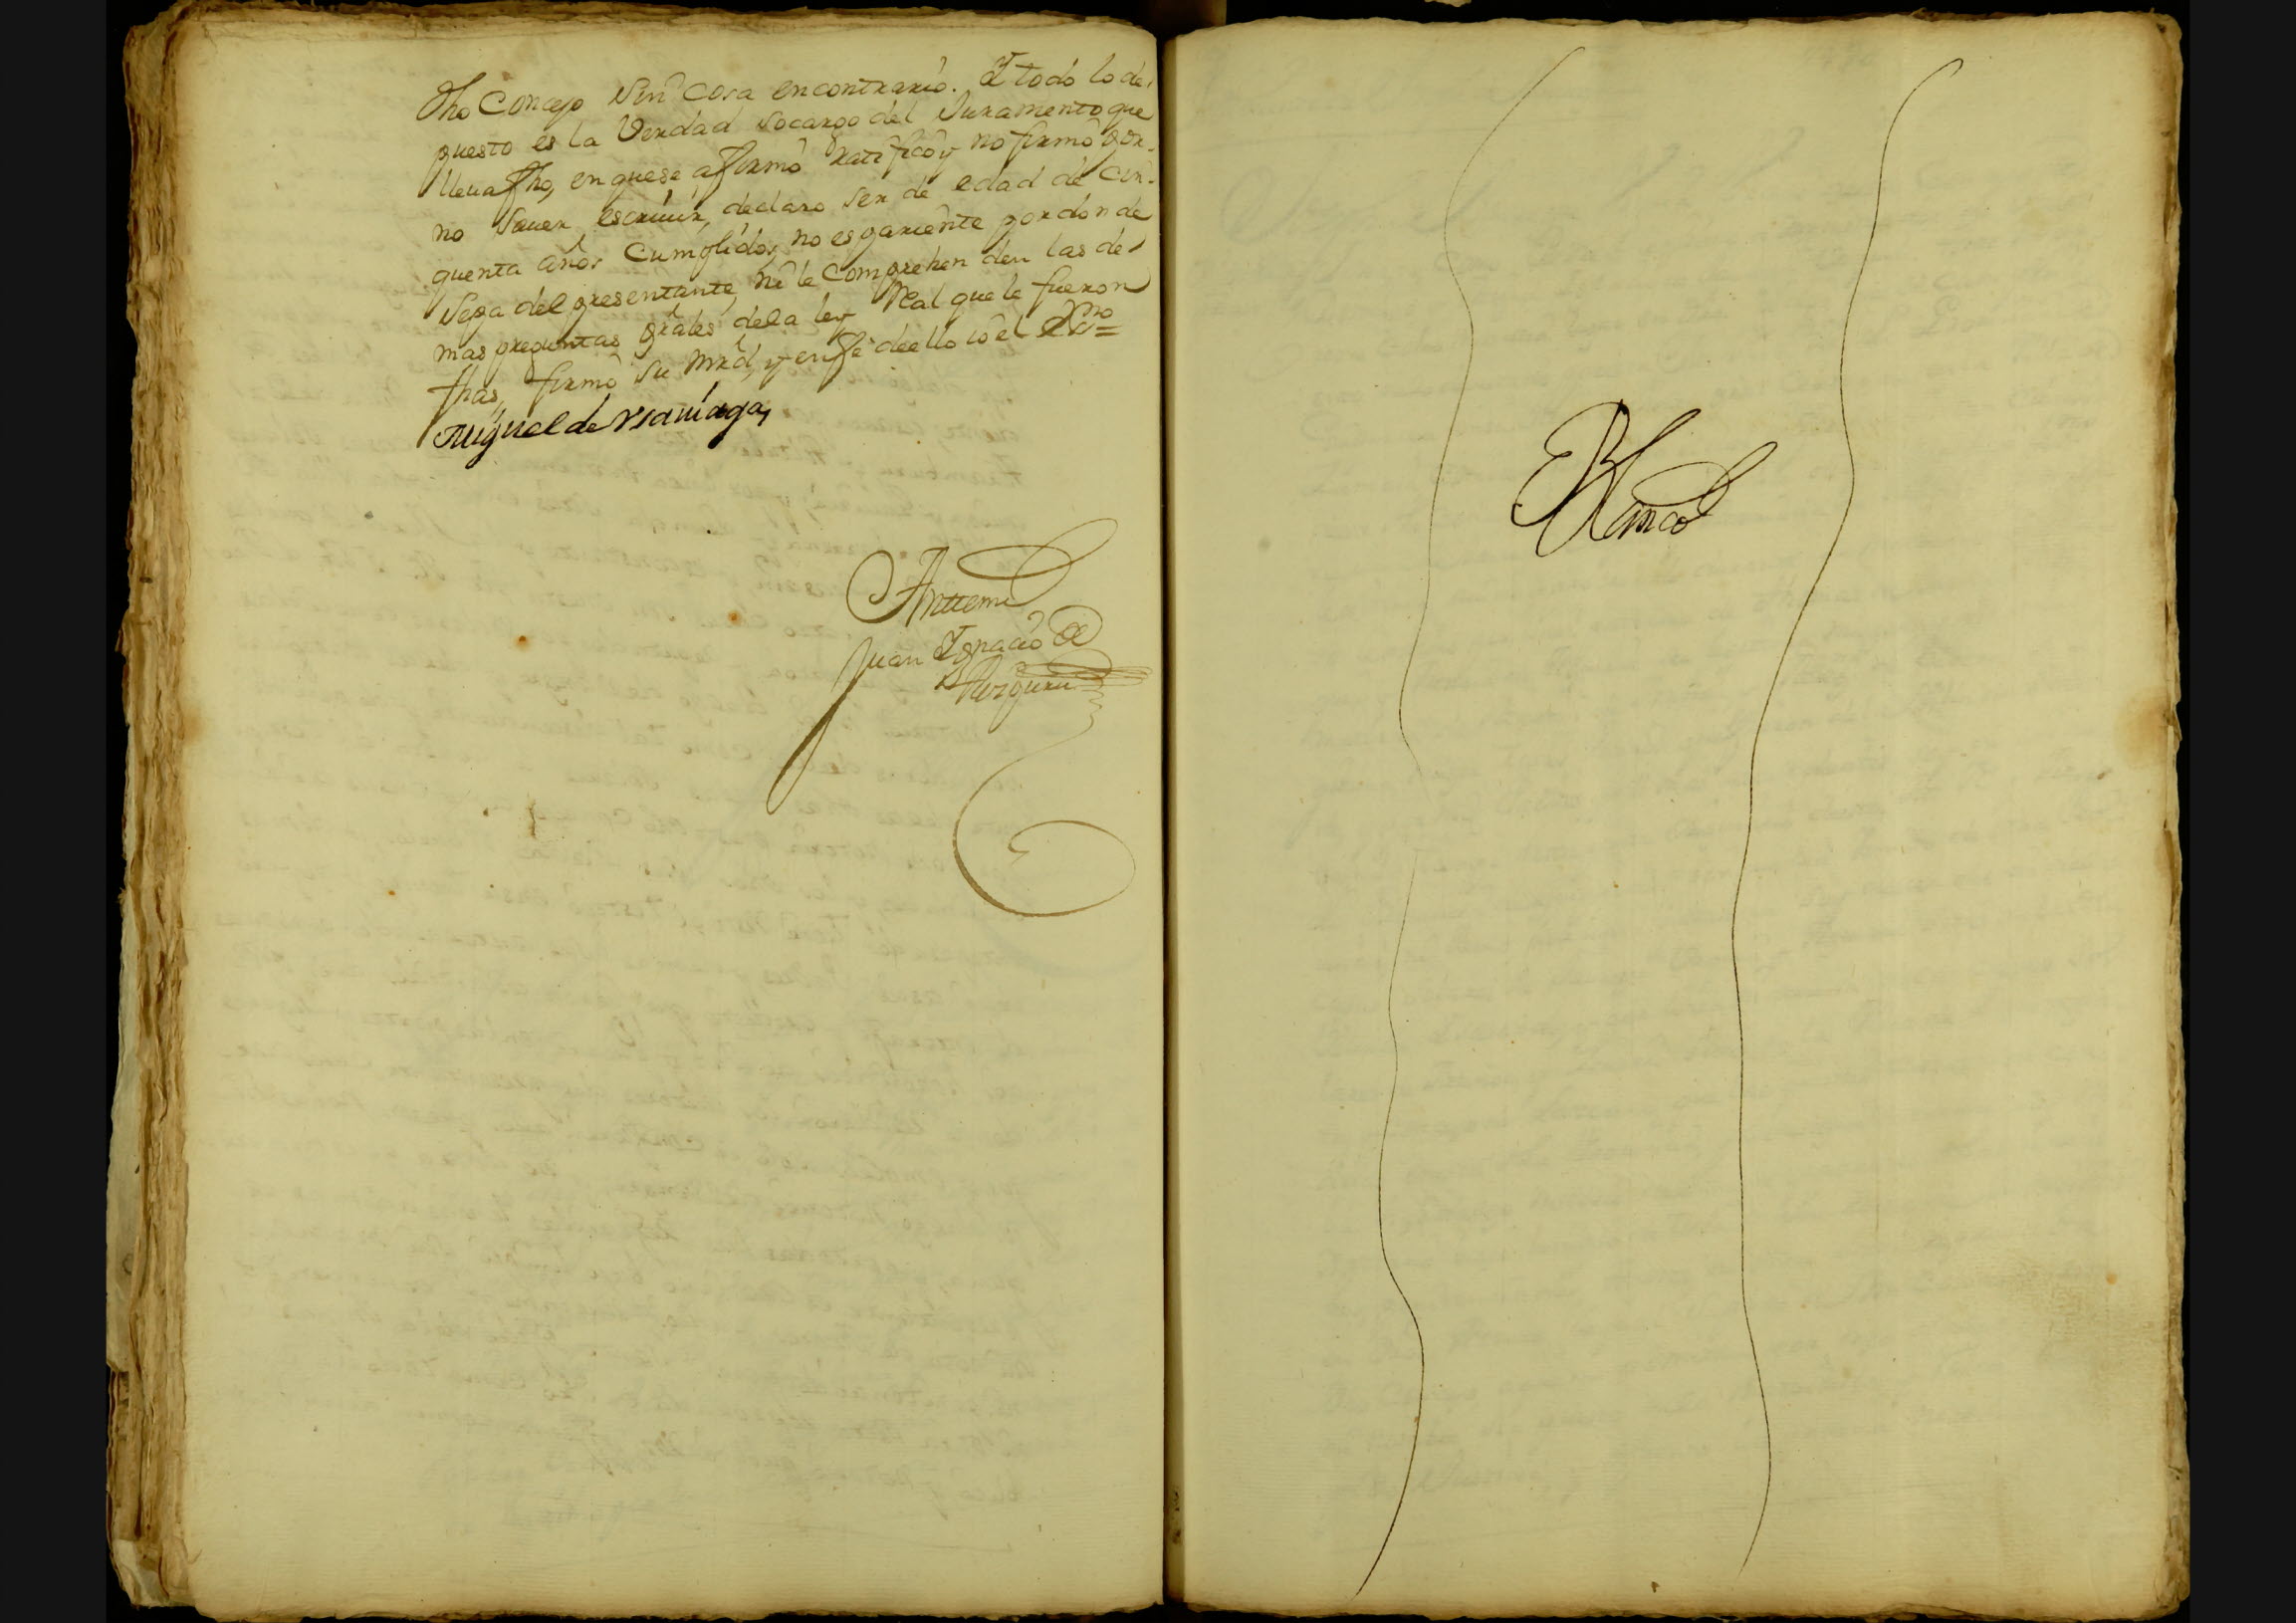 dho Concejo sin cosa encontrario. Y todo lo de
puesto es la Verdad socargo del Juramento que
lleua fho, en que se afirmó ratificó y no firmó por
no sauer escriuir, declaro ser de edad de cin-
quenta años Cumplidos, no es pariente por donde
sepa del presentante, ni le Comprehenden las de
mas preguntas grâles dela ley Real que le fueron
fhas, firmó su mrd, y en fe deello io el Essno=
Miguel de
Anttemi
Juan Ygnacio de
Blanco